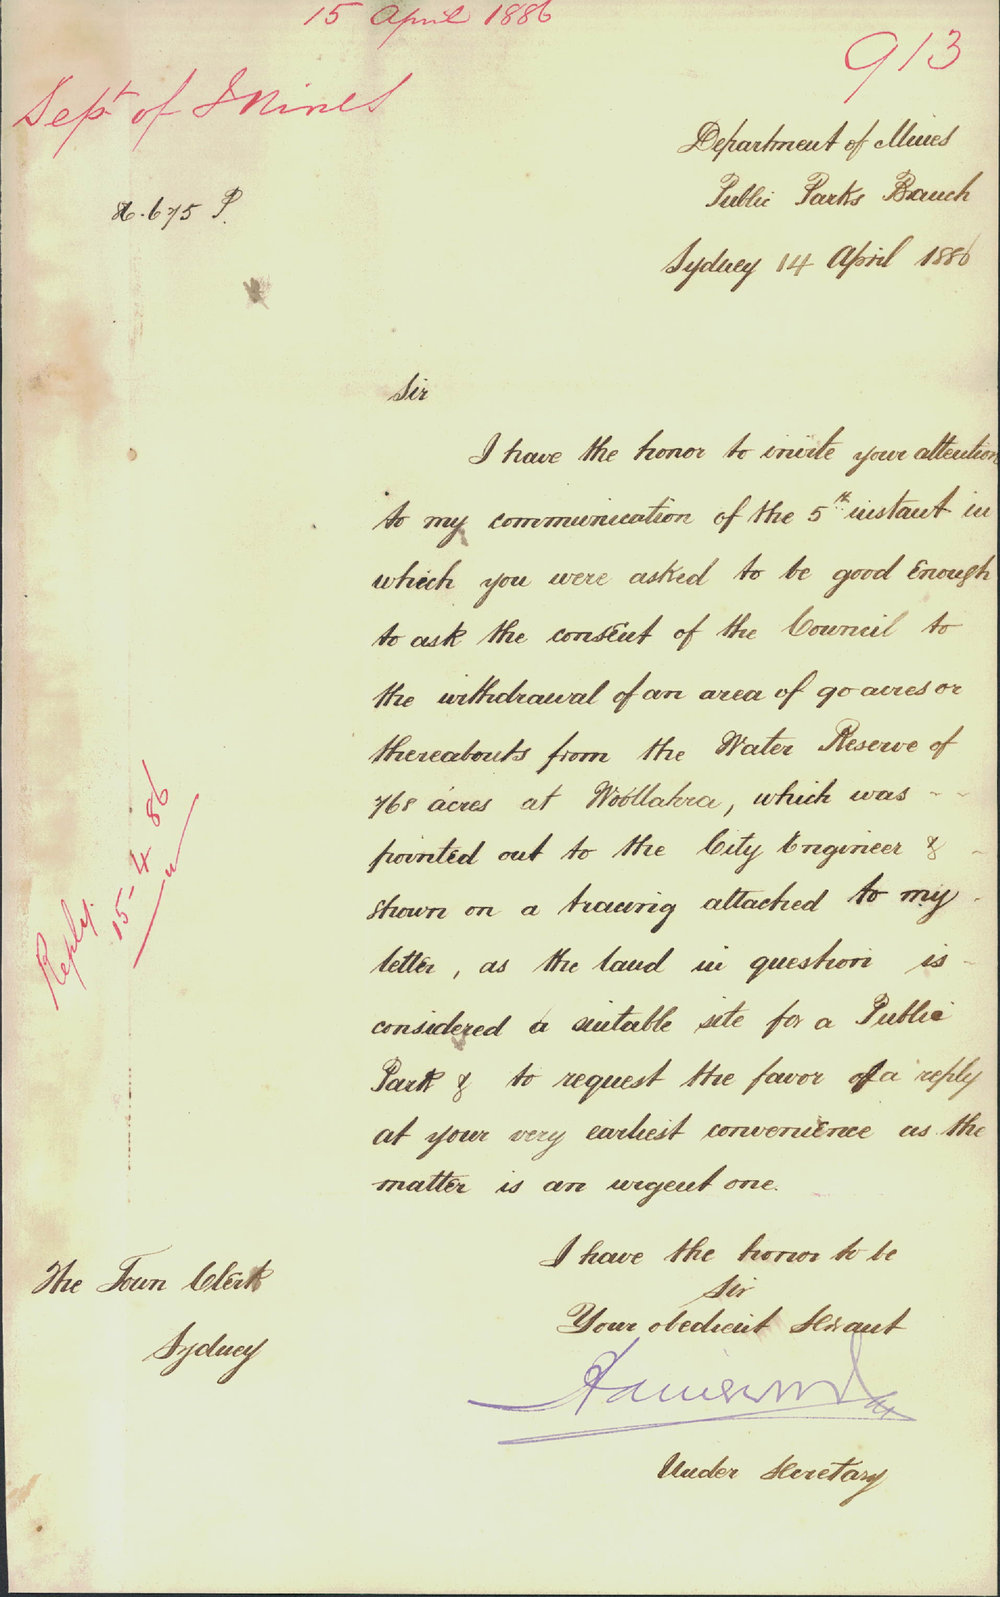 15 April 1886
913
Dept of Mines
Department of Mines
86.675 P.
Public Parks Branch
Sydney 14 April 1886
Sir
I have the honor to invite your attention
to my communication of the 5th instant in
which you were asked to be good enough
to ask the consent of the Council to
the withdrawal of an area of 90 acres or
thereabouts from the Water Reserve of
768 acres at Woollahra, which was - -
pointed out to the City Engineer & -
shown on a tracing attached to my -
letter, as the land in question is -
considered a suitable site for a Public
Park & to request the favor of a reply
at your very earliest convenience as the
matter is an urgent one.
Reply.
15-4-86
I have the honor to be
Sir
Your obedient Servant
Under Secretary
The Town Clerk
Sydney